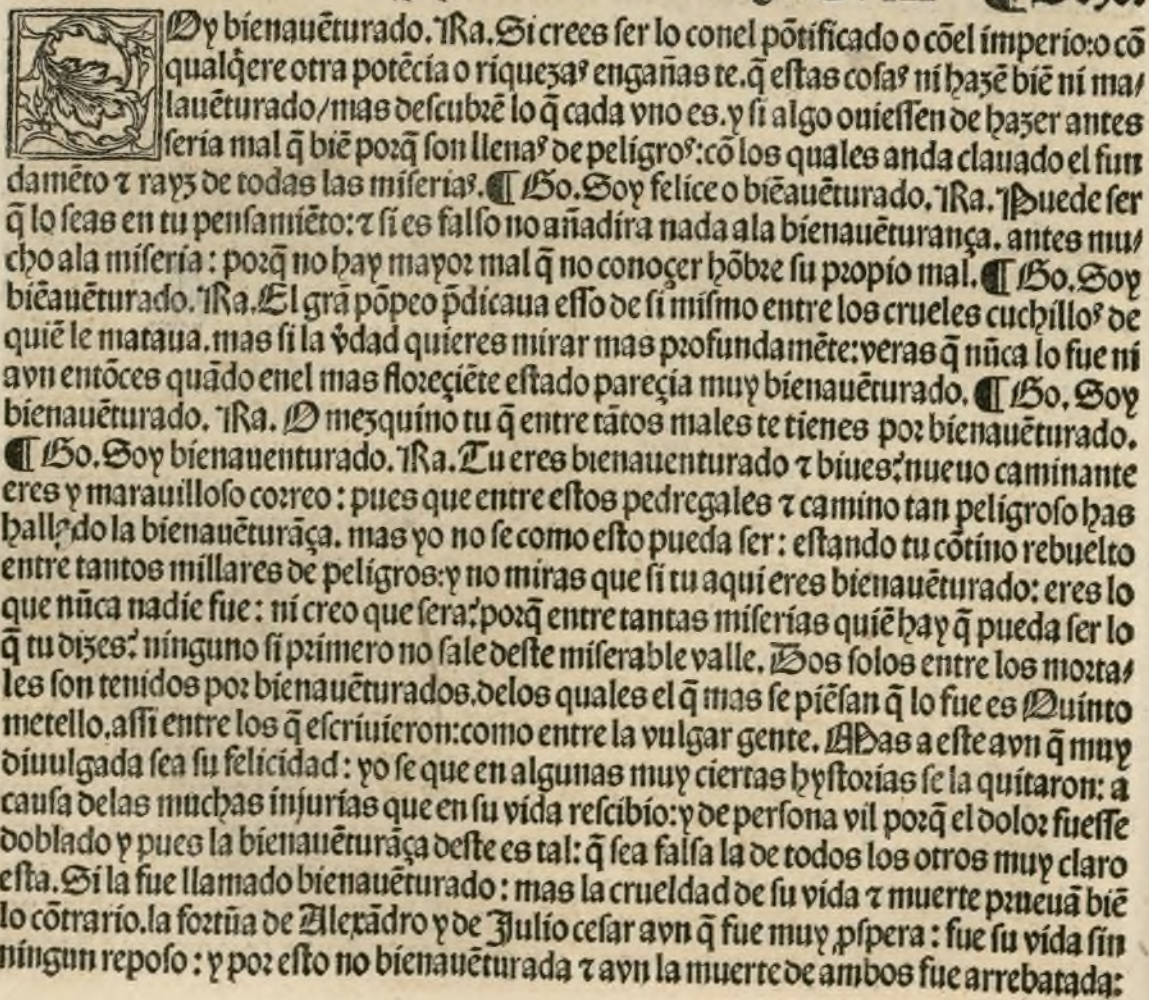 SOy bienauẽturado. Ra. Si crees ser lo conel põtificado o cõel imperio:o cõ
qualq̃ere otra potẽcia o riquezas engañas te.q̃ estas cosas ni hazẽ biẽ ni ma/
lauẽturado/mas descubrẽ lo q̃ cada vno es.y si algo ouiessen de hazer antes
seria mal q̃ biẽ porq̃ son llenas de peligros:cõ los quales anda clauado el fun
damẽto ⁊ rayz de todas las miserias.¶ Go.Soy felice o biẽauẽturado. Ra. Puede ser
q̃ lo seas en tu pensamiẽto:⁊ si es falso no añadira nada ala bienauẽturança. antes mu/
cho ala miseria : porq̃ no hay mayor mal q̃ no conoçer hõbre su propio mal.¶ Go.Soy
biẽauẽturado. Ra.El grã põpeo p̃dicaua esso de si mismo entre los crueles cuchillos de
quiẽ le mataua.mas si la v̉dad quieres mirar mas profundamẽte:veras q̃ nũca lo fue ni
avn entõces quãdo enel mas floreçiẽte estado pareçia muy bienauẽturado. ¶ Go. Soy
bienauẽturado. Ra. O mezquino tu q̃ entre tãtos males te tienes por bienauẽturado.
¶ Go.Soy bienauenturado.Ra.Tu eres bienauenturado ⁊ biues?nueuo caminante
eres y marauilloso correo : pues que entre estos pedregales ⁊ camino tan peligroso has
hallado la bienauẽturãça. mas yo no se como esto pueda ser : estando tu cõtino rebuelto
entre tantos millares de peligros:y no miras que si tu aqui eres bienauẽturado: eres lo
que nũca nadie fue : ni creo que sera?porq̃ entre tantas miserias quiẽ hay q̃ pueda ser lo
q̃ tu dizes? ninguno si primero no sale deste miserable valle. Dos solos entre los morta/
les son tenidos por bienauẽturados.delos quales el q̃ mas se piẽsan q̃ lo fue es Quinto
metello.assi entre los q̃ escriuieron:como entre la vulgar gente. Mas a este avn q̃ muy
diuulgada sea su felicidad : yo se que en algunas muy ciertas hystorias se la quitaron: a
causa delas muchas injurias que en su vida rescibio:y de persona vil porq̃ el dolor fuesse
doblado y pues la bienauẽturãça deste es tal: q̃ sea falsa la de todos los otros muy claro
esta.Sila fue llamado bienauẽturado : mas la crueldad de su vida ⁊ muerte prueuã biẽ
lo cõtrario.la fortũa de Alexãdro y de Julio cesar avn q̃ fue muy ꝓspera : fue su vida sin
ningun reposo : y por esto no bienauẽturada ⁊ avn la muerte de ambos fue arrebatada: